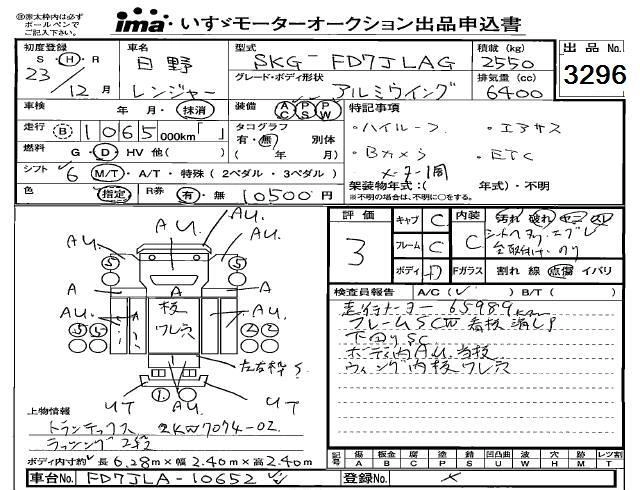 ㊟赤太枠内は必ず
ボールペンで
ご記入下さい。
ima いすゞモーターオークション出品申込書
初度登録 車名 型式 積載 (kg) 出品No.
S・H・R 日野 SKG-FD7JLAG 2550
23 グレード・ボディ形状 排気量 (cc) 3296
12月 レンジャー アルミウイング 6400
車検 年・月・抹消 装備 AC PS PW 特記事項
走行 B 1065 000km「 」 タコグラフ ・ハイルーフ ・エアサス
有・無 別体
燃料 G・D・HV 他( ) ( 年 月) ・Bカメラ ・ETC
シフト 6 M/T・A/T・特殊(2ペダル・3ペダル)
架装物年式:( 年式)・不明
色 指定 R券 有・無 10500円 ※不明の場合は、不明に○をする。
評価 キャブ C 内装 汚れ 破れ
3 フレーム C C
ボディ D Fガラス 割れ 線 点傷 イバリ
検査員報告 A/C( ) B/T( )
走行メーター 65989km
フレームSCW 看板消しP
下回りSC
ボディ内AU.当板
ウィング内板ワレ穴
AU. AU. AU.
5 5
A A A
AU. 板 AU.
ワレ穴
5 5 2 2
左右枠S
1
UT AU. UT
上物情報
トランテックス 2KW7074-02
ラッシング2段
ボディ内寸約 長6.28m×幅2.40m×高2.40m
記号 傷 板金 腐 塗 錆 凹凸曲 波 穴 時計 レツ割
A B C P S U W H M T
車台No. FD7JLA-10652 登録No. ×